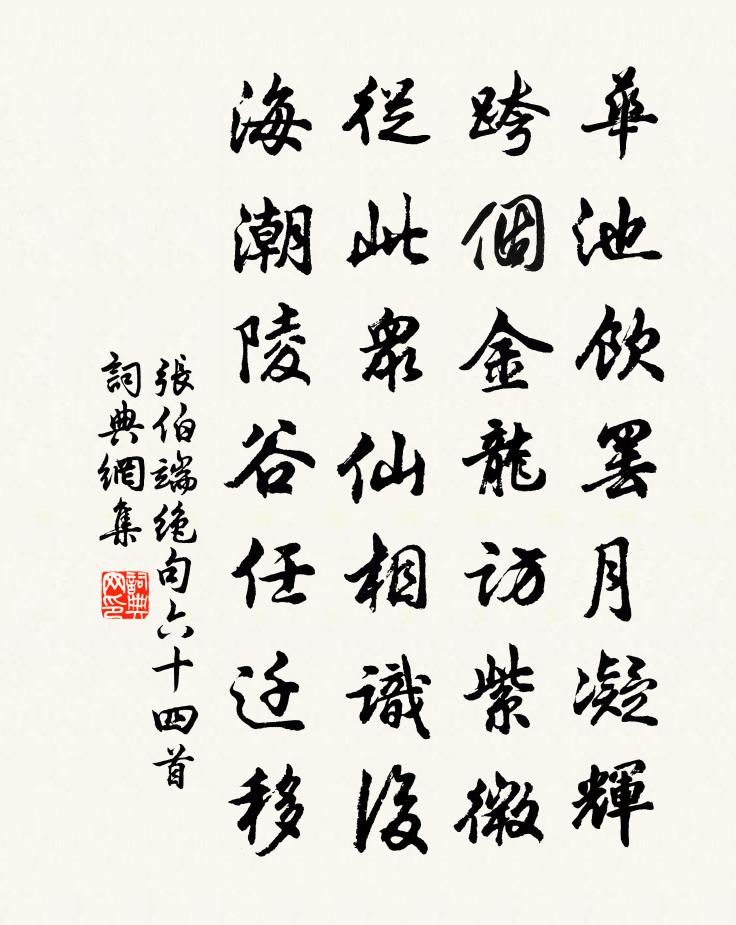 華池飲罷月凝輝
跨個金龍訪紫微
從此眾仙相識後
海潮陵谷任迁移
張伯端絶句六十四首
詞典網集
詞典網印